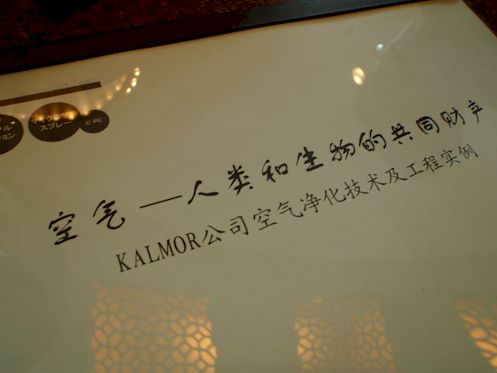 スプレー
空气—人类和生物的共同财产
KALMOR公司空气净化技术及工程实例